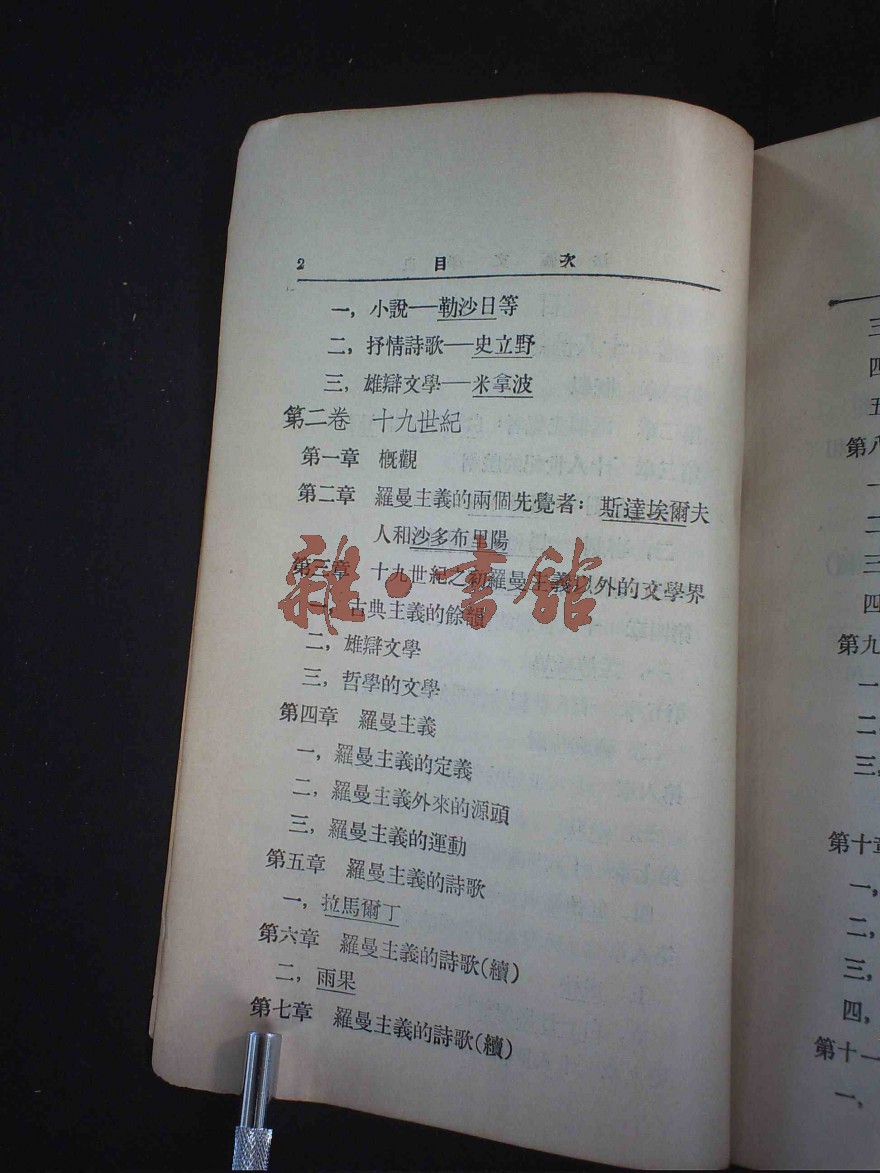 2 目 次
一，小說——勒沙日等
二，抒情詩歌——史立野
三，雄辯文學——米拿波
第二卷 十九世紀
第一章 概觀
第二章 羅曼主義的兩個先覺者：斯達埃爾夫
人和沙多布里陽
第三章 十九世紀之初羅曼主義以外的文學界
一，古典主義的餘韻
二，雄辯文學
三，哲學的文學
第四章 羅曼主義
一，羅曼主義的定義
二，羅曼主義外來的源頭
三，羅曼主義的運動
第五章 羅曼主義的詩歌
一，拉馬爾丁
第六章 羅曼主義的詩歌(續)
二，雨果
第七章 羅曼主義的詩歌(續)
雜·書館
三
四
五
第八
一
二
三
四
第九
一
二
三，
第十章
一，
二，
三，
四，
第十一
一，